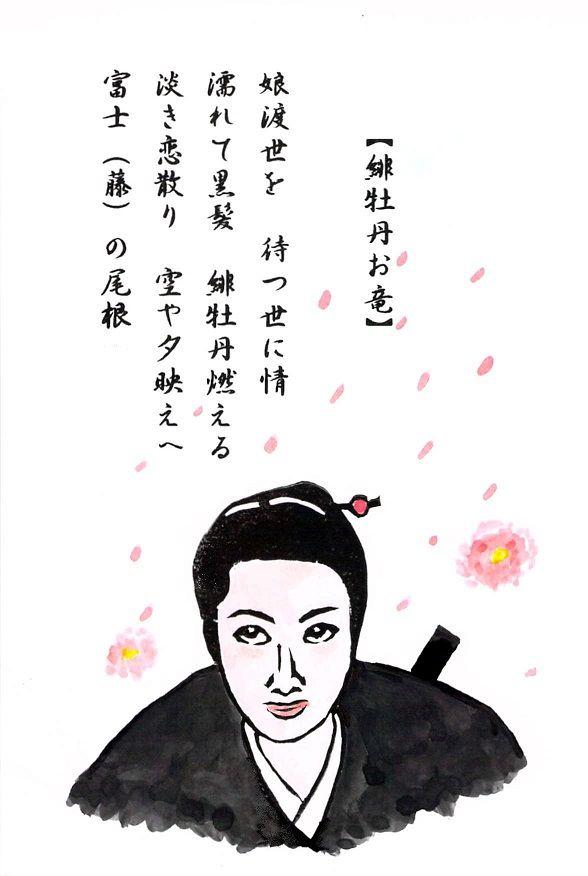 【緋牡丹お竜】
娘渡世を 待つ世に情
濡れて黒髪 緋牡丹燃える
淡き恋散り 空や夕映えへ
富士（藤）の尾根